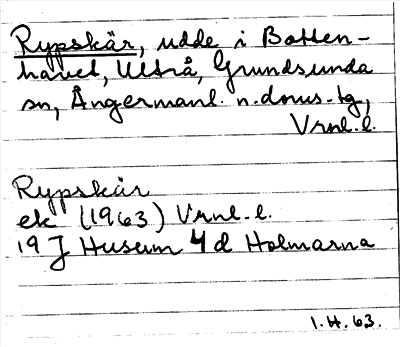 Rypskär, udde i Botten-
havet, Ultrå, Grundsunda
sn, Ångermanl. n. doms. tg,
Vrnl. l.
Rypskär
ek (1963) Vrnl. l.
19 J Husum 4 d Holmarna
1. H. 63.